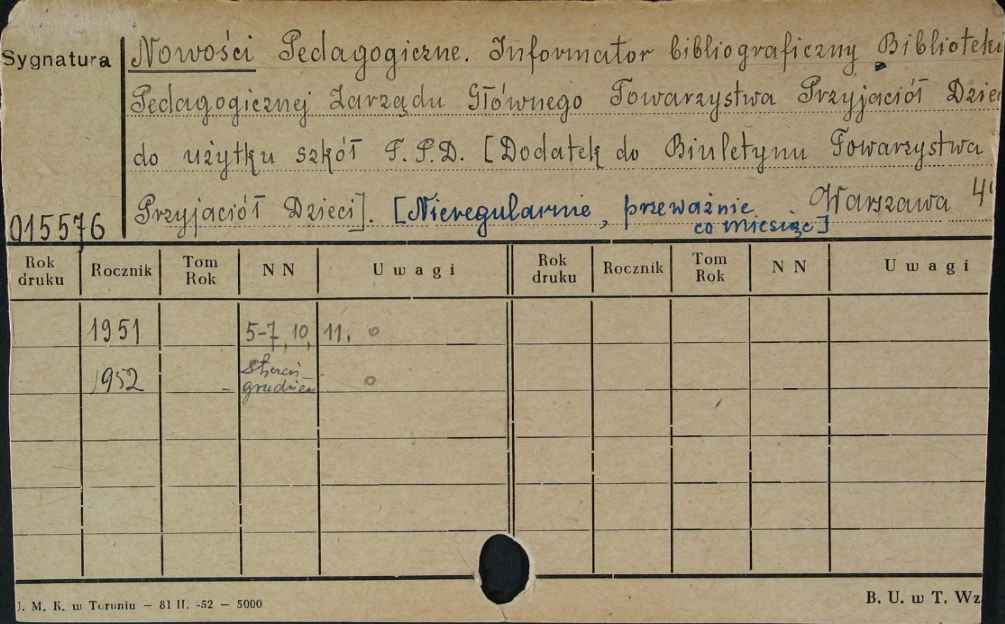 Sygnatura
Nowości Pedagogiczne. Informator bibliograficzny Bibliotek
Pedagogicznej Zarządu Głównego Towarzystwa Przyjaciół Dzie
do użytku szkół T.P.D. [Dodatek do Biuletynu Towarzystwa
Przyjaciół Dzieci]. [Nieregularnie, przeważnie co miesiąc] Warszawa 4°
015576
Rok druku Rocznik Tom Rok NN Uwagi Rok druku Rocznik Tom Rok NN Uwagi
1951 5-7, 10, 11.
1952 styczeń-grudzień
J. M. K. w Toruniu — 81 II. -52 — 5000
B. U. w T. Wz